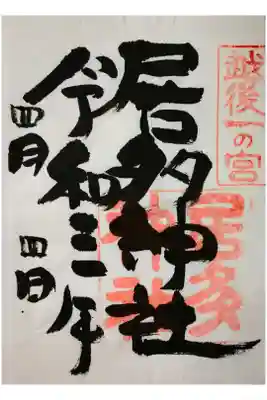 越後一の宮
居多神社
居多
神社
令和三年
四月四日